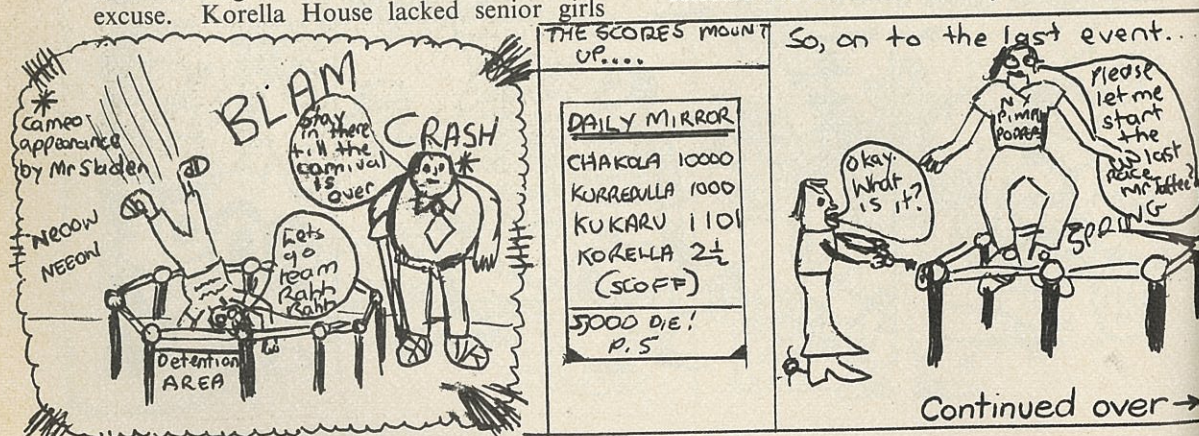 excuse. Korella House lacked senior girls
* cameo
appearance
by Mr Sladen
BLAM
stay
in there
till the
carnival
is
over
CRASH
*
NEOOW
NEEOW
Lets
go
team
Rahh
Rahh
Detention
AREA
THE SCORES MOUNT
UP....
DAILY MIRROR
CHAKOLA 10000
KURREDULLA 1000
KUKARU 1101
KORELLA 2½
(SCOFF)
5,000 DIE!
P. 5
So, on to the last event...
Okay.
What
is it?
NY
Please
let me
start
the
last
race
Mr
SPRING
Continued over →